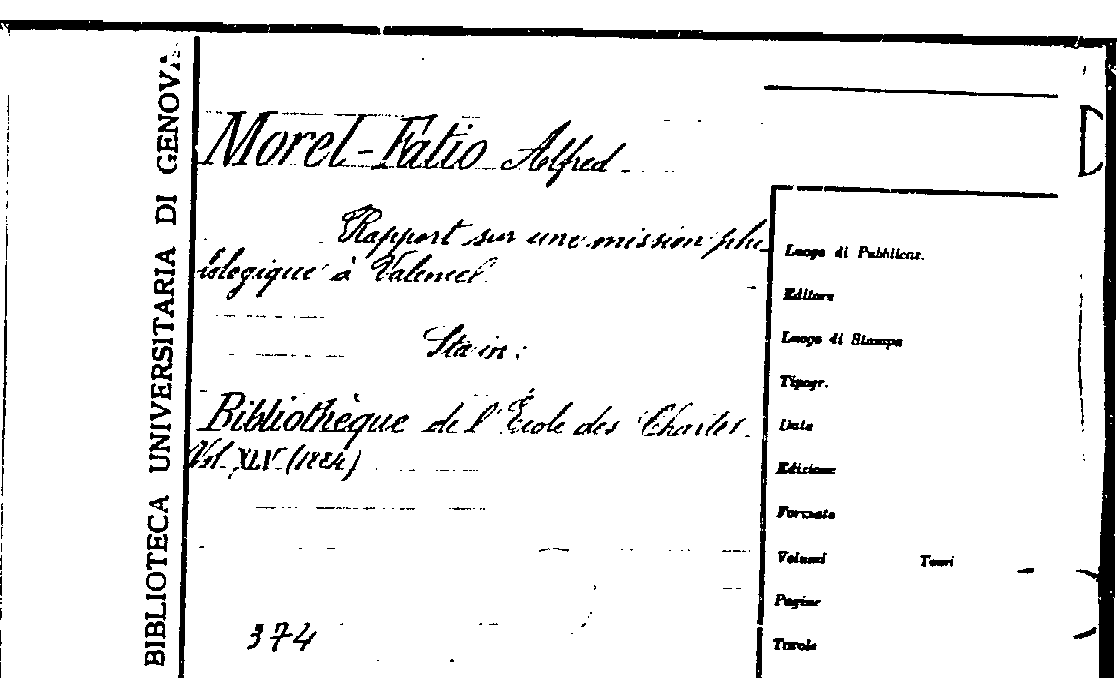 BIBLIOTECA UNIVERSITARIA DI GENOVA
Morel-Fatio Alfred
Rapport sur une mission phi-
lologique à Valence.
Sta in:
Bibliothèque de l'École des Chartes.
Vol. XLV (1884)
374
Luogo di Pubblicaz.
Editore
Luogo di Stampa
Tipogr.
Data
Edizione
Formato
Volumi Tomi
Pagine
Tavole